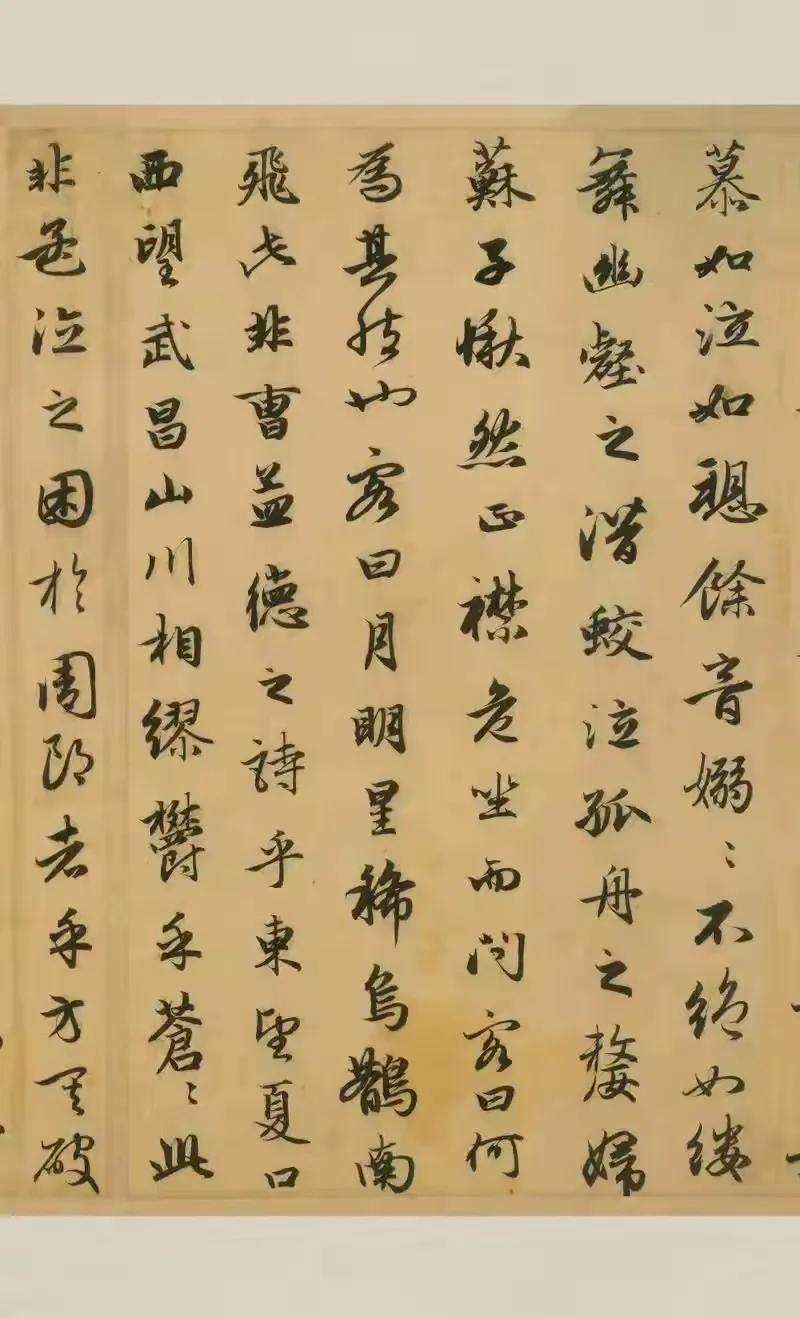 慕如泣如餘音嫋〻不絕如縷
舞幽壑之潛蛟泣孤舟之嫠婦
蘇子愀然正襟危坐而問客曰何
為其然也客曰月明星稀烏鵲南
飛此非曹孟德之詩乎東望夏口
西望武昌山川相繆鬱乎蒼〻此
非孟德之困於周郎者乎方其破